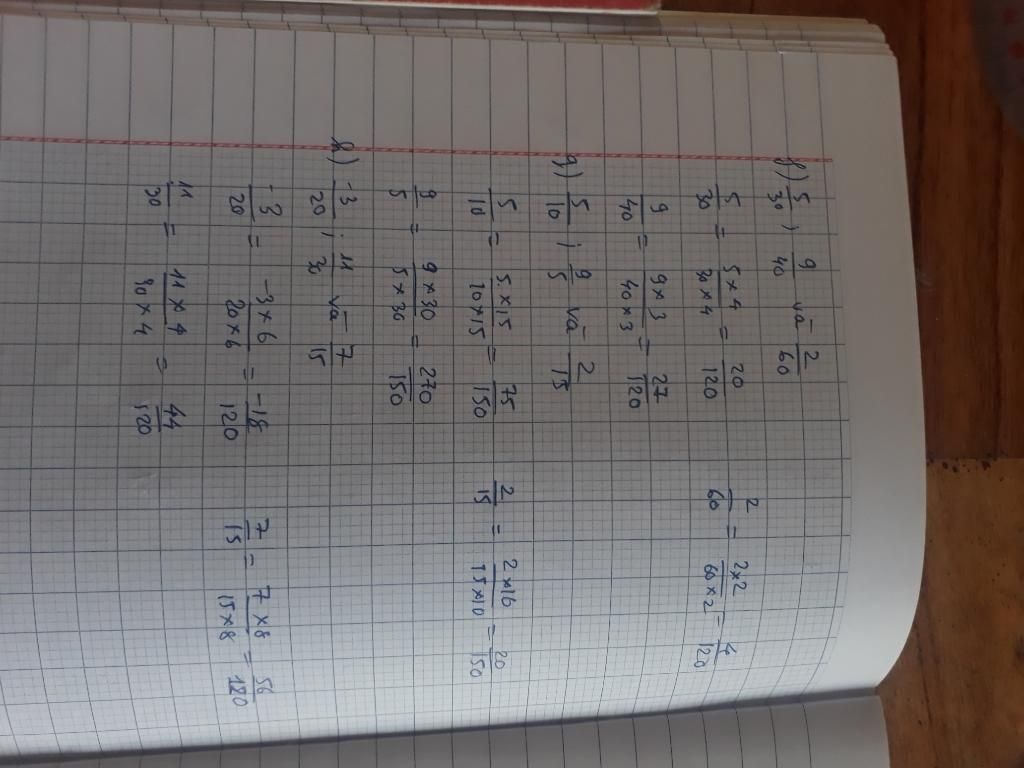 f) 5/30 ; 9/40 và 2/60
5/30 = 5×4/30×4 = 20/120 2/60 = 2×2/60×2 = 4/120
9/40 = 9×3/40×3 = 27/120
g) 5/10 ; 9/5 và 2/15
5/10 = 5×15/10×15 = 75/150 2/15 = 2×10/15×10 = 20/150
9/5 = 9×30/5×30 = 270/150
h) -3/20 ; 11/30 và 7/15
-3/20 = -3×6/20×6 = -18/120 7/15 = 7×8/15×8 = 56/120
11/30 = 11×4/30×4 = 44/120